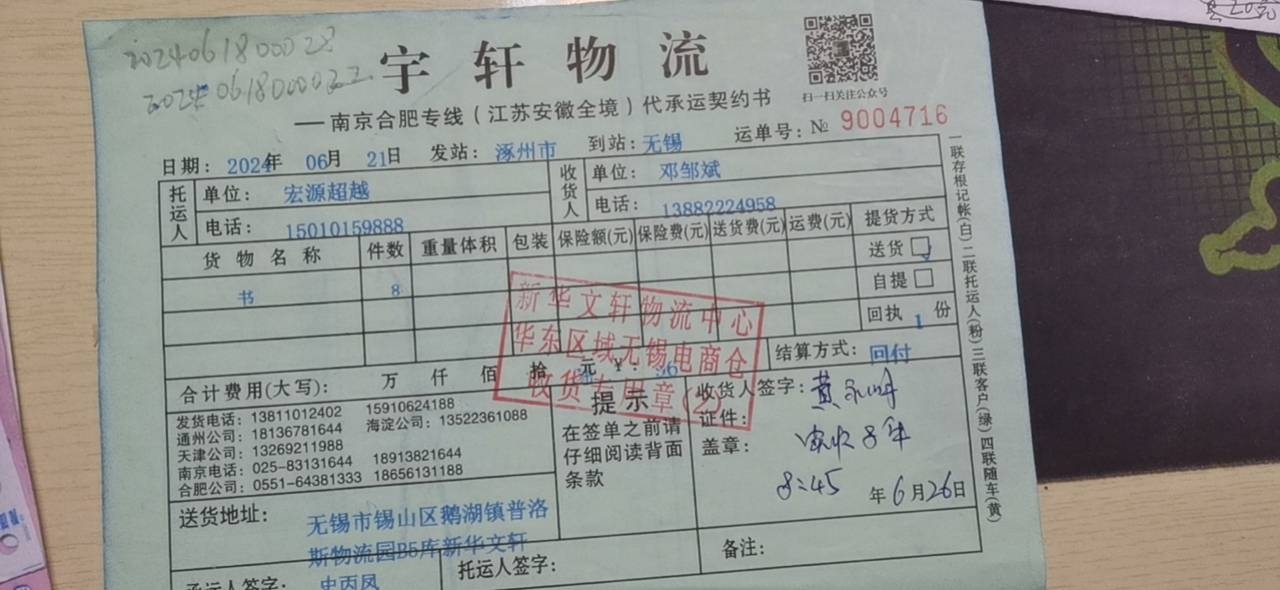 2024061800028
2024061800022
宇轩物流
扫一扫关注公众号
—南京合肥专线（江苏安徽全境）代承运契约书
运单号：№ 9004716
日期：2024年 06月 21日 发站：涿州市 到站：无锡
托运人 单位：宏源超越 收货人 单位：邓邹斌
电话：15010159888 电话：13882224958
货物名称 件数 重量体积 包装 保险额(元) 保险费(元) 送货费(元) 运费(元) 提货方式
送货
书 8 自提
回执 1 份
新华文轩物流中心
华东区域无锡电商仓
收货专用章(2)
合计费用(大写)： 万 仟 佰 拾 元 ¥： 结算方式：回付
发货电话：13811012402 15910624188
通州公司：18136781644 海淀公司：13522361088
天津公司：13269211988
南京电话：025-83131644 18913821644
合肥公司：0551-64381333 18656131188
提示
在签单之前请
仔细阅读背面
条款
收货人签字：
证件：
盖章：实收8件
8:45 年6月26日
送货地址：无锡市锡山区鹅湖镇普洛
斯物流园B5库新华文轩
备注：
承运人签字：史丙凤 托运人签字：
一联存根记帐(白)二联托运人(粉)三联客户(绿)四联随车(黄)